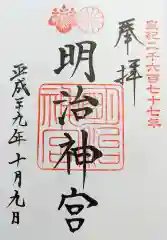 皇紀二千六百七十七年
奉拝
明治神宮
平成廿九年十月九日